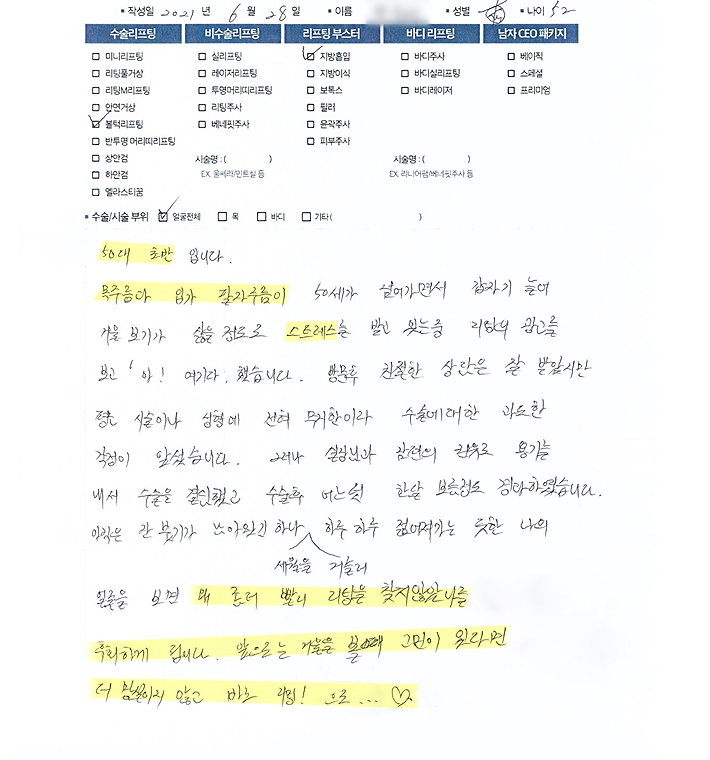 • 작성일 2021 년 6 월 28 일 • 이름 • 성별 여 • 나이 52
수술리프팅 비수술리프팅 리프팅 부스터 바디 리프팅 남자 CEO 패키지
미니리프팅 실리프팅 지방흡입 바디주사 베이직
리팅풀거상 레이저리프팅 지방이식 바디실리프팅 스페셜
리팅M리프팅 투명머리띠리프팅 보톡스 바디레이저 프리미엄
안면거상 리팅주사 필러
볼턱리프팅 베네핏주사 윤곽주사
반투명 머리띠리프팅 피부주사
상안검 시술명 : ( ) 시술명 : ( )
하안검 EX. 울쎄라/민트실 등 EX. 리니어펌/베네핏주사 등
엘라스티꿈
• 수술/시술 부위 얼굴전체 목 바디 기타 ( )
50대 초반 입니다.
목주름과 입가 팔자주름이 50세가 넘어가면서 갑자기 늘어
거울 보기가 싫을 정도로 스트레스를 받고 있는중 리팅의 광고를
보고 '아! 여기다, 했습니다. 방문후 친절한 상담은 잘 받았지만
평소 시술이나 성형에 전혀 무지한이라 수술에대한 과도한
걱정이 앞섰습니다. 그러나 실장님과 남편의 권유로 용기를
내서 수술을 결심했고 수술후 어느덧 한달 보름정도 경과하였습니다.
아직은 잔 붓기가 남아있긴 하나 하루 하루 젊어져가는 듯한 나의
세월을 거슬러
얼굴을 보면 왜 좀더 빨리 리팅을 찾지않았나를
후회하게 됩니다. 앞으로는 거울을 볼때 고민이 된다면
더 망설이지 않고 바로 리팅! 으로... ♡